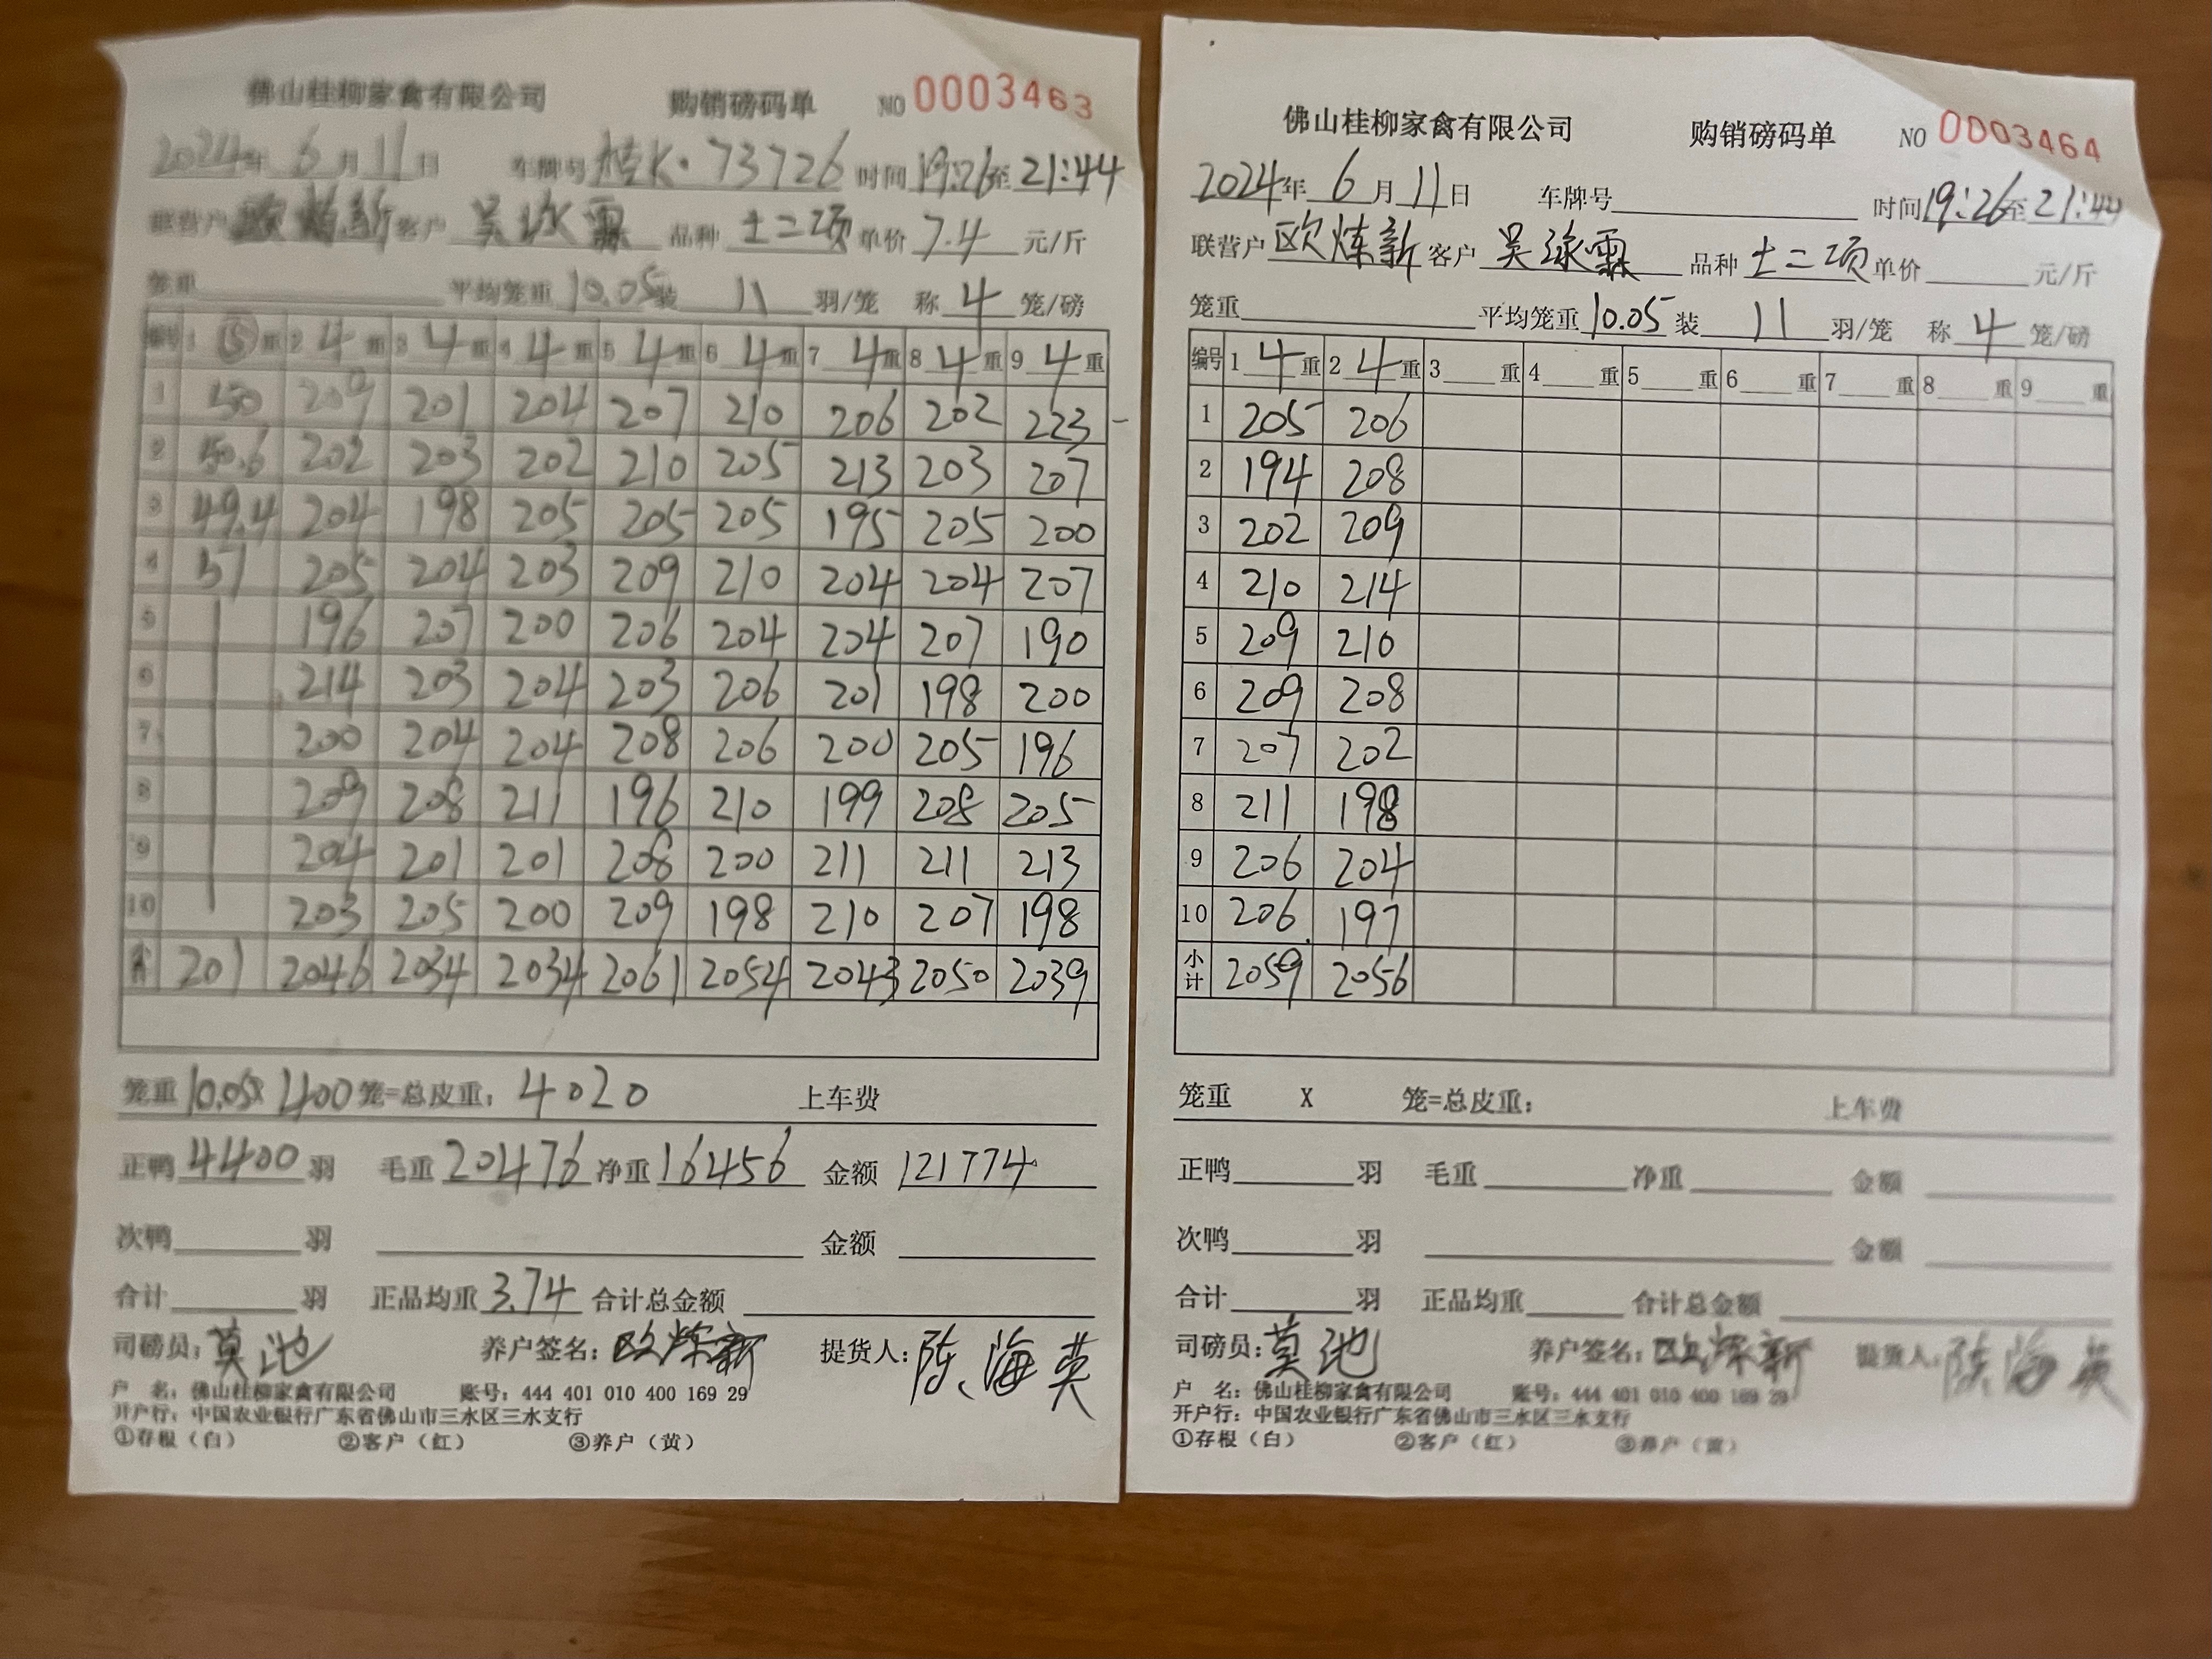 佛山桂柳家禽有限公司 购销磅码单 NO 0003463
2024年 6月 11日 车牌号 桂K·73726 时间 19:26至 21:44
联营户 欧炼新 客户 吴泳霖 品种 土二项 单价 7.4 元/斤
笼重 平均笼重 10.05 装 11 羽/笼 称 4 笼/磅
编号 1 ⑤ 重 2 4 重 3 4 重 4 4 重 5 4 重 6 4 重 7 4 重 8 4 重 9 4 重
1 50 209 201 204 207 210 206 202 223 -
2 50.6 202 203 202 210 205 213 203 207
3 49.4 204 198 205 205 205 195 205 200
4 51 205 204 203 209 210 204 204 207
5 196 207 200 206 204 204 207 190
6 214 203 204 203 206 201 198 200
7 200 204 204 208 206 200 205 196
8 209 208 211 196 210 199 208 205
9 204 201 201 208 200 211 211 213
10 203 205 200 209 198 210 207 198
小计 201 2046 2034 2034 2061 2054 2043 2050 2039
笼重 10.05X 400 笼=总皮重: 4020 上车费
正鸭 4400 羽 毛重 20476 净重 16456 金额 121774
次鸭 羽 金额
合计 羽 正品均重 3.74 合计总金额
司磅员: 莫池 养户签名: 欧炼新 提货人: 陈海英
户 名: 佛山桂柳家禽有限公司 账号: 444 401 010 400 169 29
开户行: 中国农业银行广东省佛山市三水区三水支行
①存根(白) ②客户(红) ③养户(黄)
佛山桂柳家禽有限公司 购销磅码单 NO 0003464
2024年 6月 11日 车牌号 时间 19:26至 21:44
联营户 欧炼新 客户 吴泳霖 品种 土二项 单价 元/斤
笼重 平均笼重 10.05 装 11 羽/笼 称 4 笼/磅
编号 1 4 重 2 4 重 3 重 4 重 5 重 6 重 7 重 8 重 9 重
1 205 206
2 194 208
3 202 209
4 210 214
5 209 210
6 209 208
7 207 202
8 211 198
9 206 204
10 206 197
小计 2059 2056
笼重 X 笼=总皮重: 上车费
正鸭 羽 毛重 净重 金额
次鸭 羽 金额
合计 羽 正品均重 合计总金额
司磅员: 莫池 养户签名: 欧炼新 提货人: 陈海英
户 名: 佛山桂柳家禽有限公司 账号: 444 401 010 400 169 29
开户行: 中国农业银行广东省佛山市三水区三水支行
①存根(白) ②客户(红) ③养户(黄)